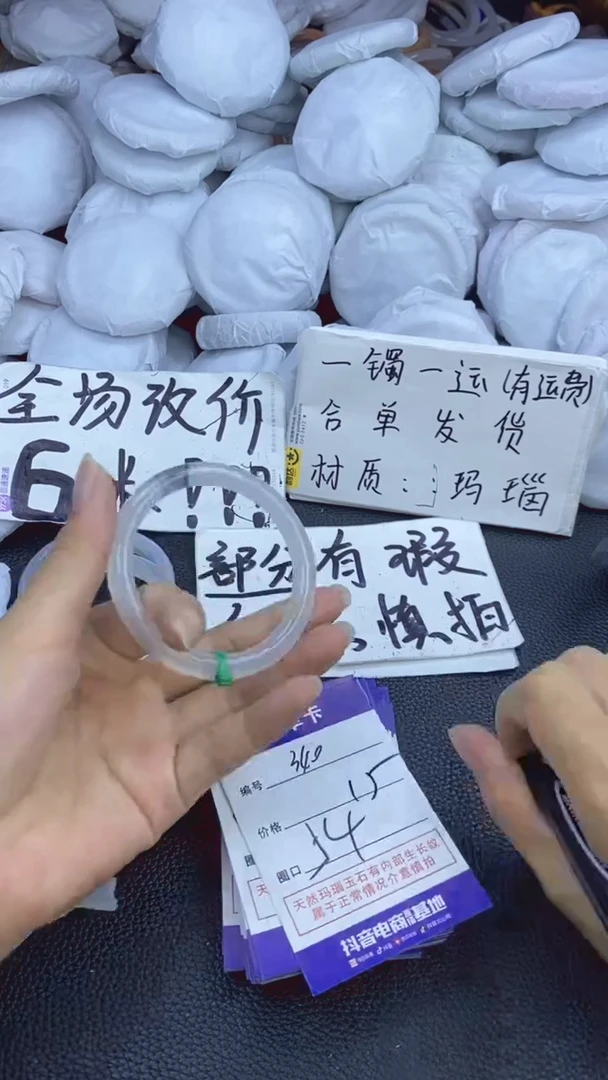 全场改价
6米!!!
一镯一运(有运费)
合单发货
材质:玛瑙
部分有瑕
慎拍
卡
编号 340
价格 15
圈口 54
天然玛瑙玉石有内部生长纹
属于正常情况介意慎拍
抖音电商直播基地